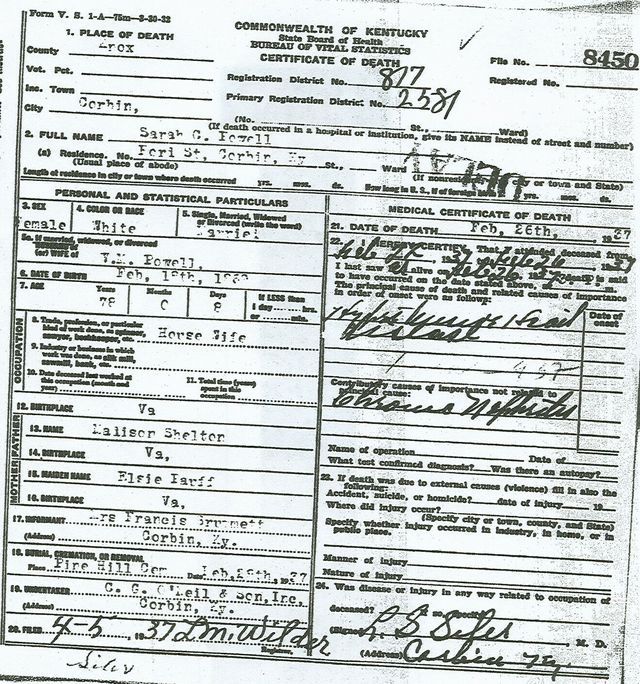 Form V. S. 1-A—75m—3-20-32
COMMONWEALTH OF KENTUCKY
State Board of Health
BUREAU OF VITAL STATISTICS
CERTIFICATE OF DEATH
File No. 8450
Registered No.
1. PLACE OF DEATH
County Knox
Vot. Pct.
Inc. Town
City Corbin,
Registration District No. 877
Primary Registration District No. 2581
(No. St., Ward)
(If death occurred in a hospital or institution, give its NAME instead of street and number)
2. FULL NAME Sarah C. Powell
(a) Residence. No. Ford St, Corbin, Ky St., Ward
(Usual place of abode) (If nonresident city or town and State)
Length of residence in city or town where death occurred yrs. mos. ds. How long in U. S., if of foreign birth? yrs. mos. ds.
PERSONAL AND STATISTICAL PARTICULARS
3. SEX
Female
4. COLOR OR RACE
White
5. Single, Married, Widowed
or Divorced (write the word)
Married
5a. If married, widowed, or divorced
(or) WIFE of
Powell,
6. DATE OF BIRTH Feb, 18th,
7. AGE Years Months Days If LESS than
78 0 8 1 day hrs.
or min.
OCCUPATION
8. Trade, profession, or particular
kind of work done, as spinner,
sawyer, bookkeeper, etc.
House Wife
9. Industry or business in which
work was done, as silk mill,
sawmill, bank, etc.
10. Date deceased last worked at
this occupation (month and
year)
11. Total time (years)
spent in this
occupation
12. BIRTHPLACE Va
FATHER
13. NAME Shelton
14. BIRTHPLACE Va,
MOTHER
15. MAIDEN NAME Elsie
16. BIRTHPLACE Va,
17. INFORMANT Mrs Francis Brummett
(Address) Corbin, Ky.
18. BURIAL, CREMATION, OR REMOVAL
Place Pine Hill Cem Date Feb, 28th, 1937
19. UNDERTAKER C. G. O'Neil & Son, Inc,
(Address) Corbin, Ky.
20. FILED 4-5 1937 L.M. Wilder
Registrar.
MEDICAL CERTIFICATE OF DEATH
21. DATE OF DEATH Feb, 26th, 1937
22. I HEREBY CERTIFY, That I attended deceased from
37 Feb 26 1937
I last saw alive on Feb 26 death is said
to have occurred on the date stated above, at m.
The principal cause of death and related causes of importance
in order of onset were as follows:
Date of
onset
Disease
Contributory causes of importance not related to
principal cause:
Chronic Nephritis
Name of operation Date of
What test confirmed diagnosis? Was there an autopsy?
23. If death was due to external causes (violence) fill in also the
following:
Accident, suicide, or homicide? date of injury 19
Where did injury occur?
(Specify city or town, county, and State)
Specify whether injury occurred in industry, in home, or in
public place.
Manner of injury
Nature of injury
24. Was disease or injury in any way related to occupation of
deceased? If so, specify
(Signed) M. D.
(Address) Corbin Ky.